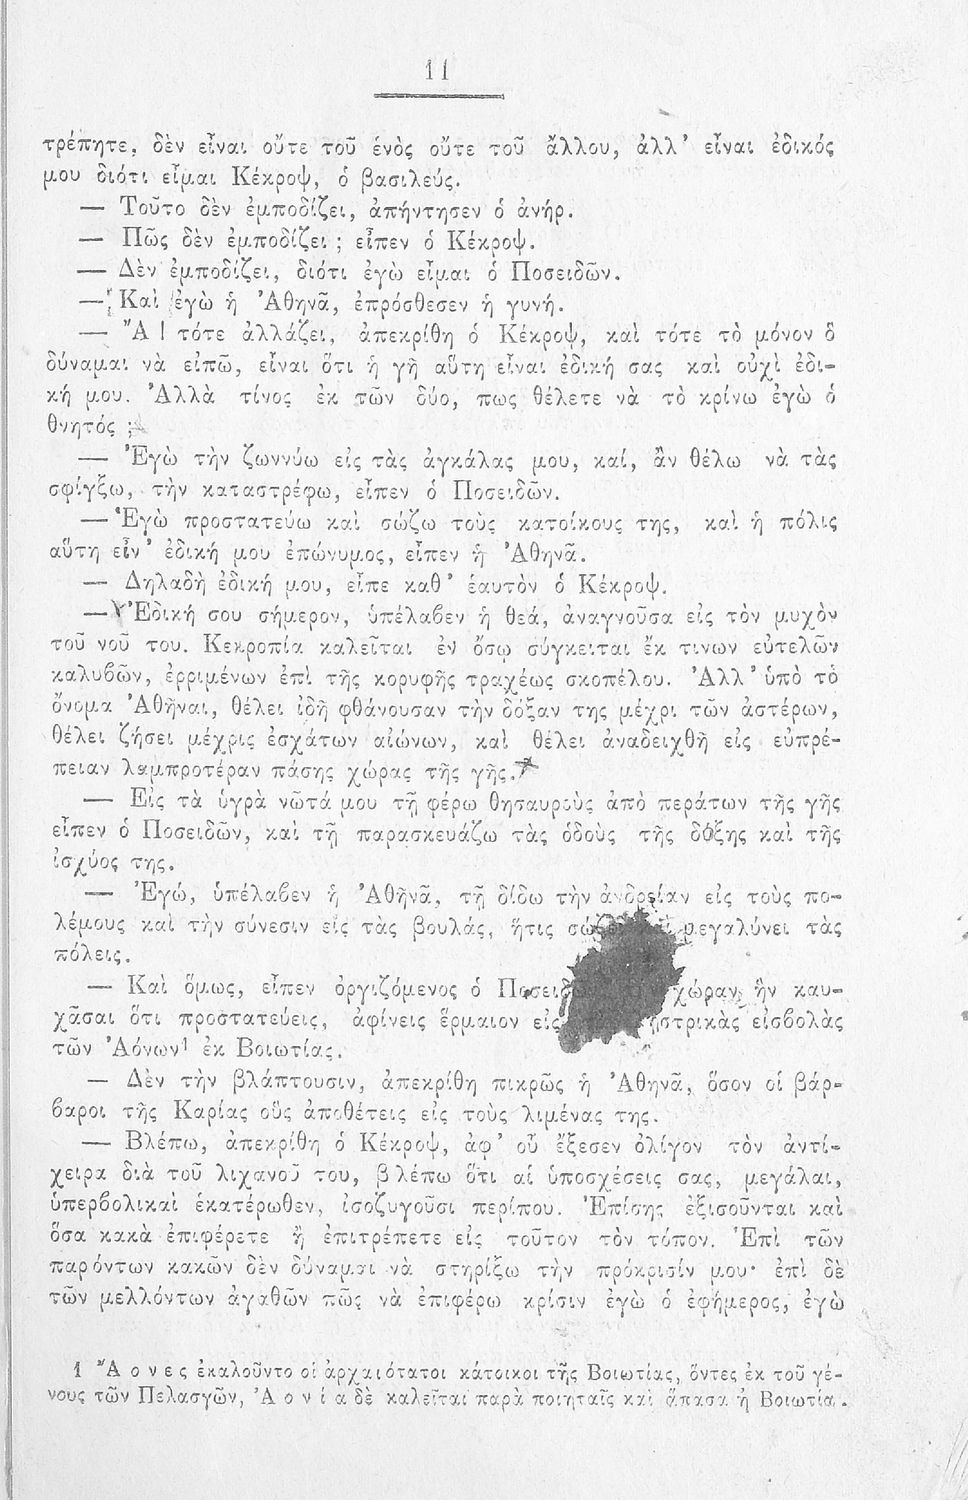 11
τρέπητε, δὲν εἶναι οὔτε τοῦ ἑνὸς οὔτε τοῦ ἄλλου, ἀλλ' εἶναι ἐδικός
μου διότι εἶμαι Κέκροψ, ὁ βασιλεύς.
— Τοῦτο δὲν ἐμποδίζει, ἀπήντησεν ὁ ἀνήρ.
— Πῶς δὲν ἐμποδίζει ; εἶπεν ὁ Κέκροψ.
— Δὲν ἐμποδίζει, διότι ἐγὼ εἶμαι ὁ Ποσειδῶν.
— Καὶ ἐγὼ ἡ Ἀθηνᾶ, ἐπρόσθεσεν ἡ γυνή.
— Ἄ ! τότε ἀλλάζει, ἀπεκρίθη ὁ Κέκροψ, καὶ τότε τὸ μόνον ὃ
δύναμαι νὰ εἰπῶ, εἶναι ὅτι ἡ γῆ αὕτη εἶναι ἐδική σας καὶ οὐχὶ ἐδι-
κή μου. Ἀλλὰ τίνος ἐκ τῶν δύο, πως θέλετε νὰ τὸ κρίνω ἐγὼ ὁ
θνητός ;
— Ἐγὼ τὴν ζωννύω εἰς τὰς ἀγκάλας μου, καί, ἂν θέλω νὰ τὰς
σφίγξω, τὴν καταστρέφω, εἶπεν ὁ Ποσειδῶν.
— Ἐγὼ προστατεύω καὶ σώζω τοὺς κατοίκους της, καὶ ἡ πόλις
αὕτη εἶν' ἐδική μου ἐπώνυμος, εἶπεν ἡ Ἀθηνᾶ.
— Δηλαδὴ ἐδική μου, εἶπε καθ' ἑαυτὸν ὁ Κέκροψ.
— Ἐδική σου σήμερον, ὑπέλαβεν ἡ θεά, ἀναγνοῦσα εἰς τὸν μυχὸν
τοῦ νοῦ του. Κεκροπία καλεῖται ἐν ὅσῳ σύγκειται ἔκ τινων εὐτελῶν
καλυβῶν, ἐρριμένων ἐπὶ τῆς κορυφῆς τραχέως σκοπέλου. Ἀλλ' ὑπὸ τὸ
ὄνομα Ἀθῆναι, θέλει ἰδῆ φθάνουσαν τὴν δόξαν της μέχρι τῶν ἀστέρων,
θέλει ζήσει μέχρις ἐσχάτων αἰώνων, καὶ θέλει ἀναδειχθῆ εἰς εὐπρέ-
πειαν λαμπροτέραν πάσης χώρας τῆς γῆς.
— Εἰς τὰ ὑγρὰ νῶτά μου τῇ φέρω θησαυροὺς ἀπὸ περάτων τῆς γῆς
εἶπεν ὁ Ποσειδῶν, καὶ τῇ παρασκευάζω τὰς ὁδοὺς τῆς δόξης καὶ τῆς
ἰσχύος της.
— Ἐγώ, ὑπέλαβεν ἡ Ἀθηνᾶ, τῇ δίδω τὴν ἀνδρείαν εἰς τοὺς πο-
λέμους καὶ τὴν σύνεσιν εἰς τὰς βουλάς, ἥτις μεγαλύνει τὰς
πόλεις.
— Καὶ ὅμως, εἶπεν ὀργιζόμενος ὁ Ποσειδῶν χώραν, ἣν καυ-
χᾶσαι ὅτι προστατεύεις, ἀφίνεις ἕρμαιον εἰς εἰσβολὰς
τῶν Ἀόνων¹ ἐκ Βοιωτίας.
— Δὲν τὴν βλάπτουσιν, ἀπεκρίθη πικρῶς ἡ Ἀθηνᾶ, ὅσον οἱ βάρ-
βαροι τῆς Καρίας οὓς ἀποθέτεις εἰς τοὺς λιμένας της.
— Βλέπω, ἀπεκρίθη ὁ Κέκροψ, ἀφ' οὗ ἔξεσεν ὀλίγον τὸν ἀντί-
χειρα διὰ τοῦ λιχανοῦ του, βλέπω ὅτι αἱ ὑποσχέσεις σας, μεγάλαι,
ὑπερβολικαὶ ἑκατέρωθεν, ἰσοζυγοῦσι περίπου. Ἐπίσης ἐξισοῦνται καὶ
ὅσα κακὰ ἐπιφέρετε ἢ ἐπιτρέπετε εἰς τοῦτον τὸν τόπον. Ἐπὶ τῶν
παρόντων κακῶν δὲν δύναμαι νὰ στηρίξω τὴν πρόκρισίν μου· ἐπὶ δὲ
τῶν μελλόντων ἀγαθῶν πῶς νὰ ἐπιφέρω κρίσιν ἐγὼ ὁ ἐφήμερος, ἐγὼ
1 Ἄονες ἐκαλοῦντο οἱ ἀρχαιότατοι κάτοικοι τῆς Βοιωτίας, ὄντες ἐκ τοῦ γέ-
νους τῶν Πελασγῶν, Ἀονία δὲ καλεῖται παρὰ ποιηταῖς καὶ ἅπασα ἡ Βοιωτία.